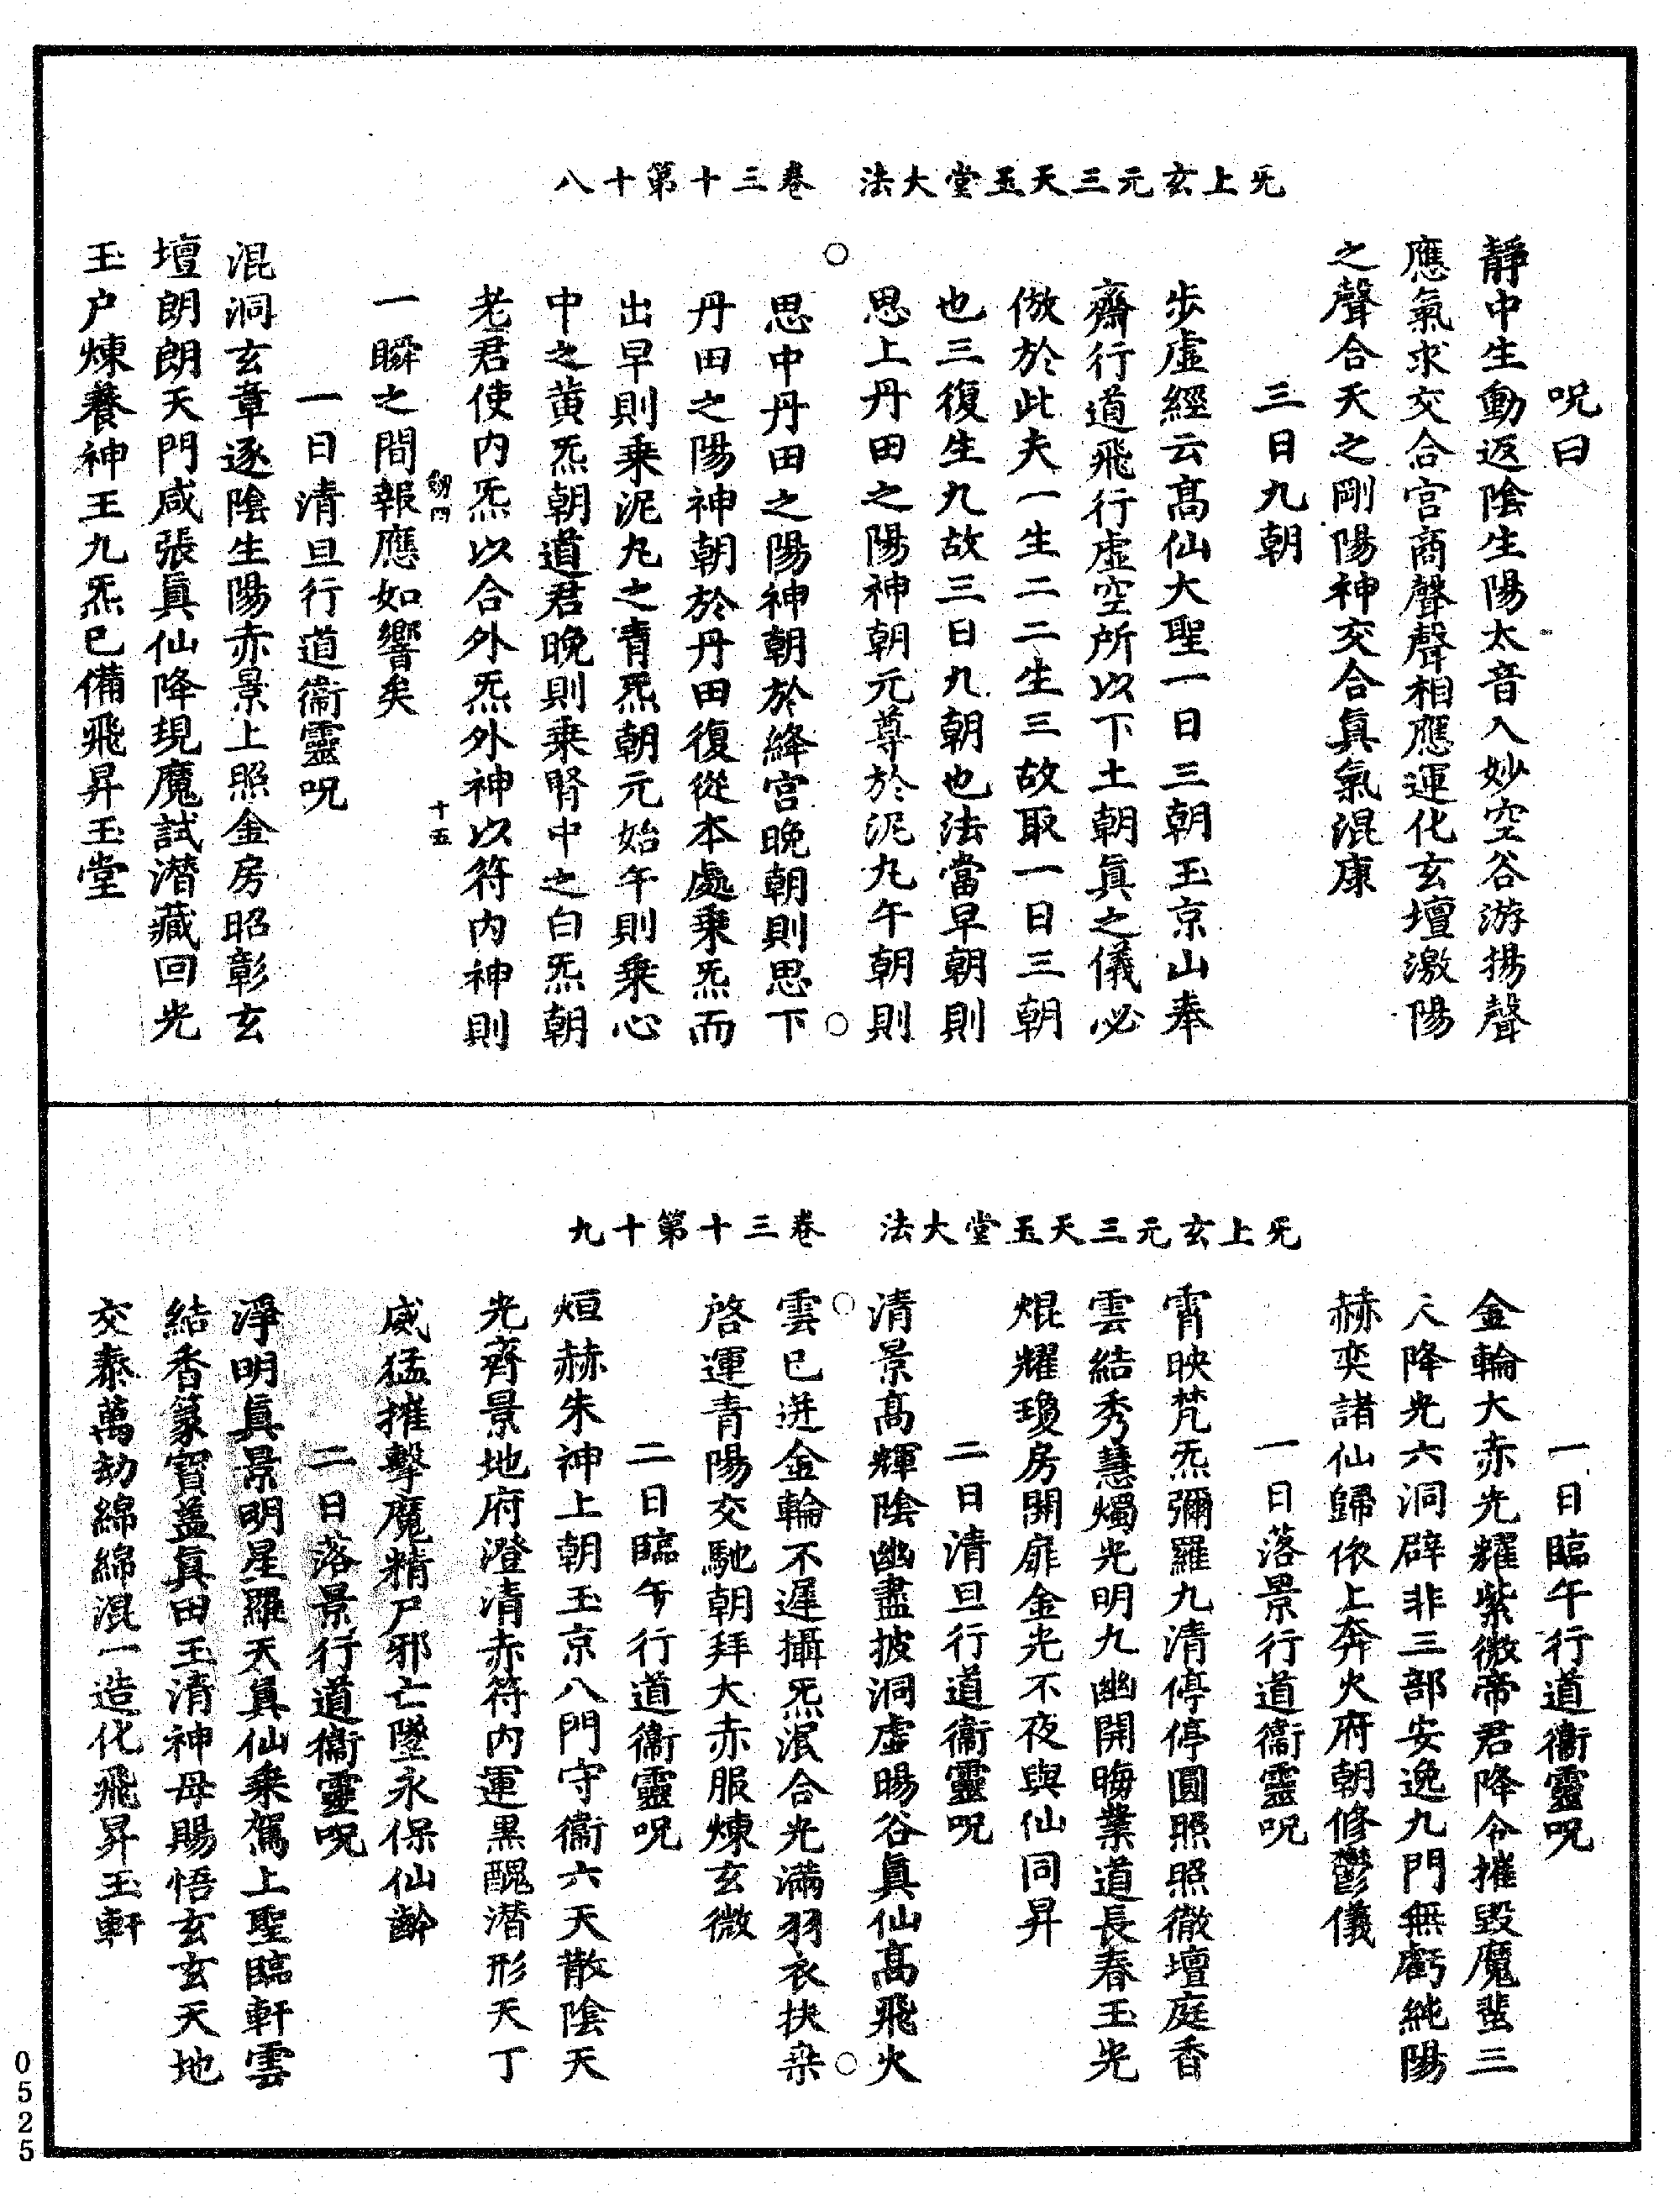 旡上玄元三天玉堂大法　卷三十第十八
呪曰
靜中生動返陰生陽太音入妙空谷游揚聲
應氣求交合宮商聲聲相應運化玄壇激陽
之聲合天之剛陽神交合眞氣混康
三日九朝
步虛經云高仙大聖一日三朝玉京山奉
齋行道飛行虛空所以下土朝眞之儀必
倣於此夫一生二二生三故取一日三朝
也三復生九故三日九朝也法當早朝則
思上丹田之陽神朝元尊於泥丸午朝則
思中丹田之陽神朝於絳宮晚朝則思下
丹田之陽神朝於丹田復從本處乗炁而
出早則乗泥丸之青炁朝元始午則乗心
中之黄炁朝道君晚則乗腎中之白炁朝
老君使内炁以合外炁外神以符内神則
一瞬之間報應如響矣
十五
一日清旦行道衞靈呪
混洞玄章逐陰生陽赤景上照金房昭彰玄
壇朗朗天門咸張眞仙降現魔試潜藏回光
玉户煉養神王九炁已備飛昇玉堂
旡上玄元三天玉堂大法　卷三十第十九
一日臨午行道衞靈呪
金輪大赤光耀紫微帝君降令摧毀魔蜚三
天降光六洞辟非三部安逸九門無虧純陽
赫奕諸仙歸依上奔火府朝修鬱儀
一日落景行道衞靈呪
霄映梵炁彌羅九清停停圓照照徹壇庭香
雲結秀慧燭光明九幽開晦業道長春玉光
焜耀瓊房開扉金光不夜與仙同昇
二日清旦行道衞靈呪
清景高輝陰幽盡披洞虛暘谷眞仙高飛火
雲已迸金輪不遲攝炁混合光滿羽衣扶桒
啓運青陽交馳朝拜大赤服煉玄微
二日臨午行道衞靈呪
烜赫朱神上朝玉京八門守衞六天散陰天
光齊景地府澄清赤符内運黒醜潜形天丁
威猛摧擊魔精尸邪亡墜永保仙齡
二日落景行道衞靈呪
淨明眞景明星羅天眞仙乗駕上聖臨軒雲
結香篆寳蓋眞田玉清神母賜悟玄玄天地
交泰萬劫綿綿混一造化飛昇玉軒
0525